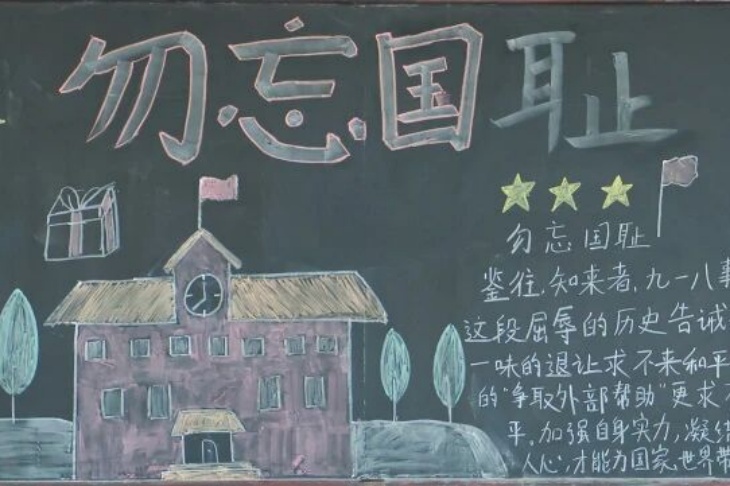 勿忘国耻
勿忘国耻
鉴往,知来者,九一八事
这段屈辱的历史告诫
一味的退让求不来和平
的"争取外部帮助"更求不
平,加强自身实力,凝结
人心,才能为国家,世界带